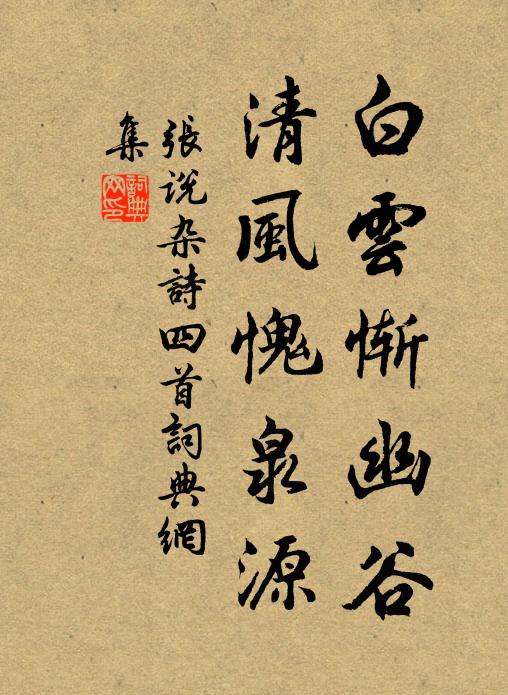 白雲慚幽谷
清風愧泉源
張説杂詩四首詞典網
集
詞典
网印